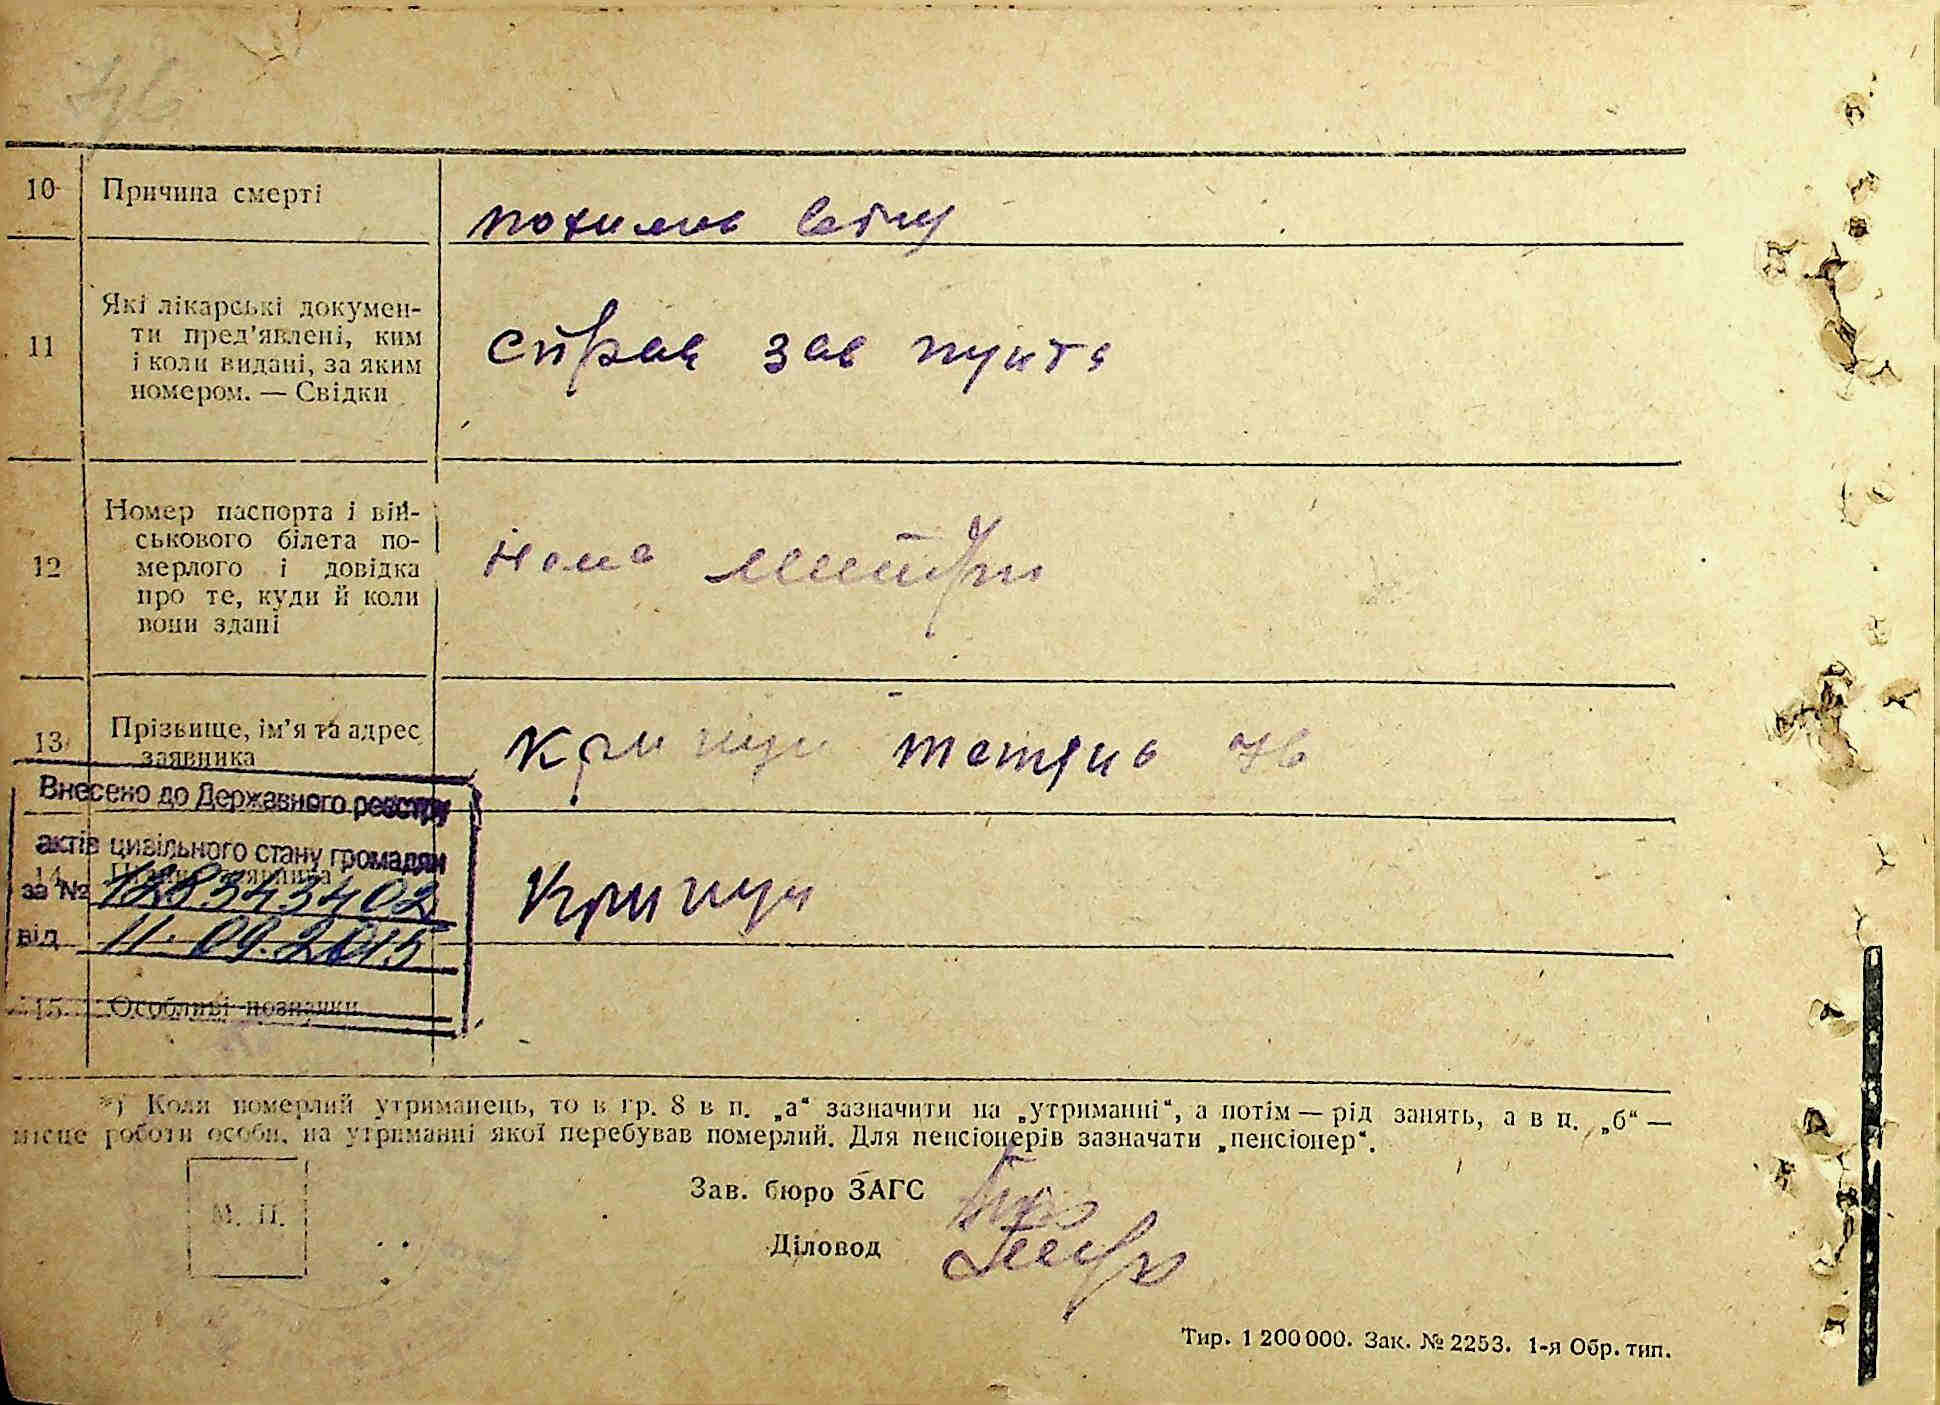 10 Причина смерті похилив віку
11 Які лікарські докумен-
ти пред'явлені, ким
і коли видані, за яким
номером. — Свідки
справ зав пункта
12 Номер паспорта і вій-
ськового білета по-
мерлого і довідка
про те, куди й коли
вони здані
нема
13 Прізвище, ім'я та адрес
заявника
тетяна
Внесено до Державного реєстру
актів цивільного стану громадян
за № 128343402
від 11.09.2015
14
15 Особливі позначки
*) Коли померлий утриманець, то в гр. 8 в п. „а“ зазначити на „утриманні“, а потім — рід занять, а в п. „б“ —
місце роботи особи, на утриманні якої перебував померлий. Для пенсіонерів зазначати „пенсіонер“.
М. П.
Зав. бюро ЗАГС
Діловод
Тир. 1 200 000. Зак. № 2253. 1-я Обр. тип.